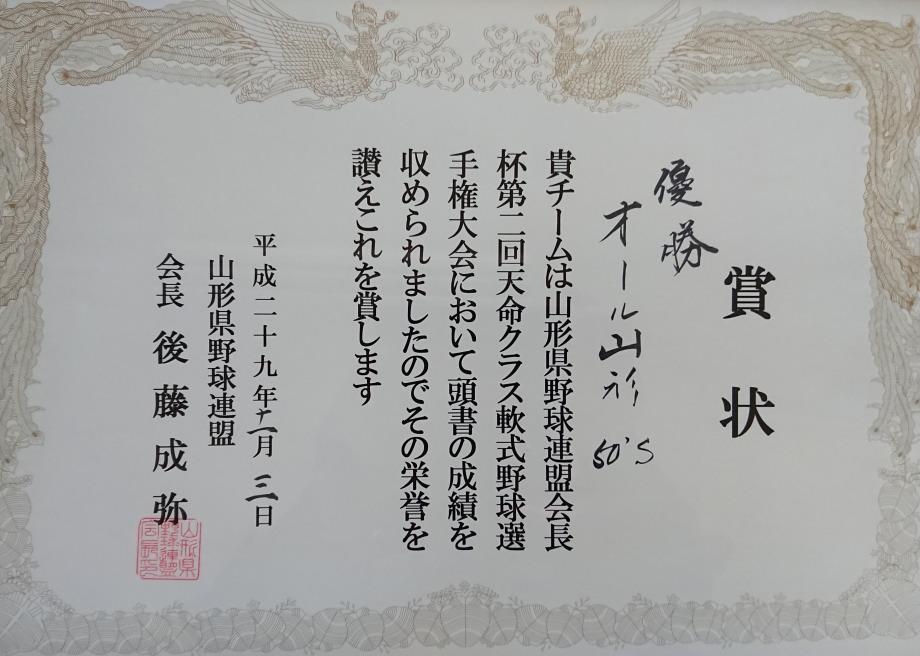 賞状
優勝
オール山形 50'S
貴チームは山形県野球連盟会長
杯第二回天命クラス軟式野球選
手権大会において頭書の成績を
収められましたのでその栄誉を
讃えこれを賞します
平成二十九年十一月三日
山形県野球連盟
会長 後藤成弥
山形県
野球連盟
会長之印